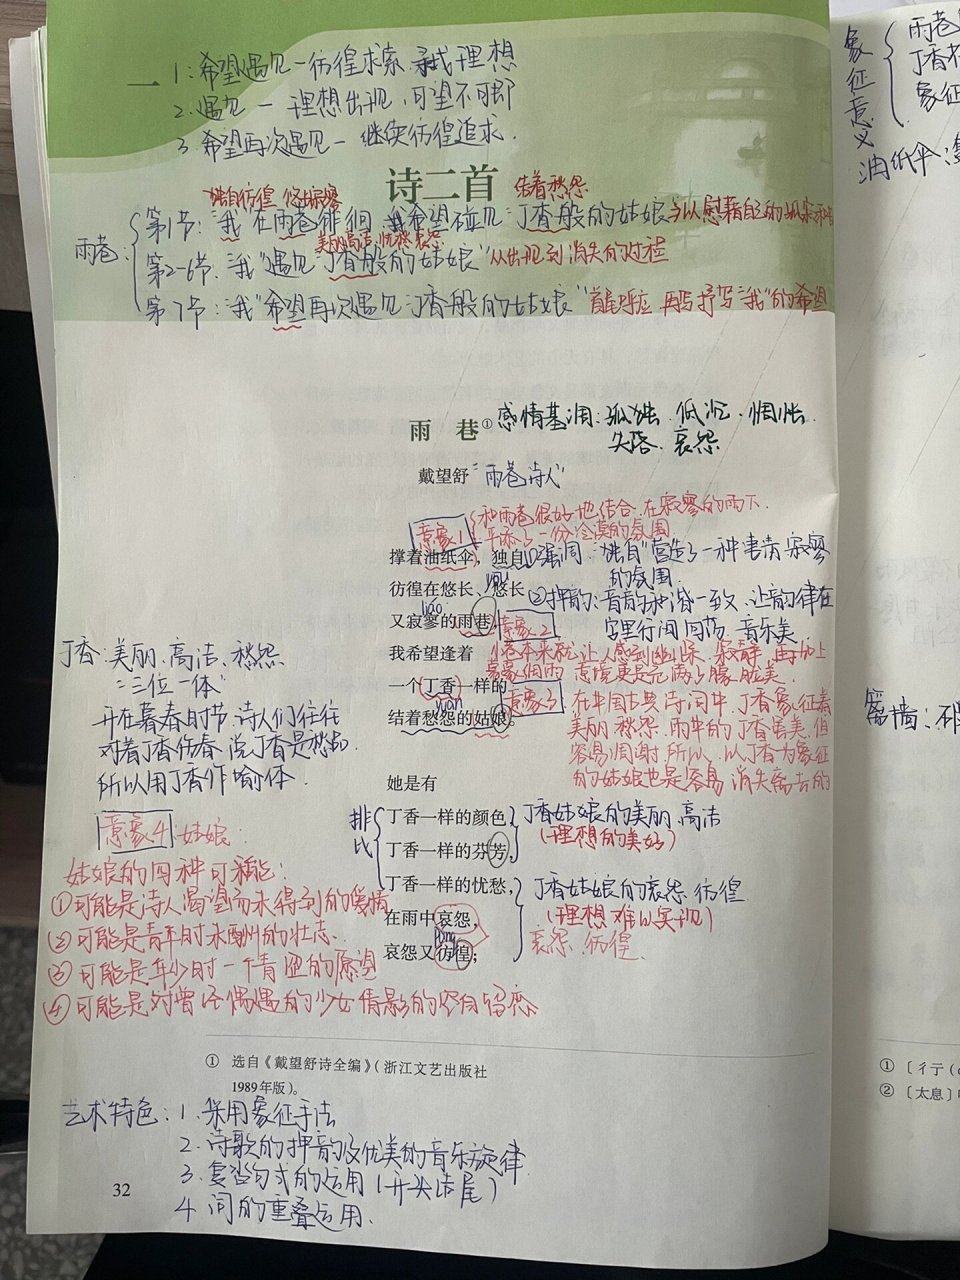 一 1：希望遇见—彷徨求索 寻找理想
2. 遇见 — 理想出现，可望不可即
3. 希望再次遇见 — 继续彷徨追求．
诗二首
独自彷徨 悠长寂寥
结着愁怨
雨巷：
第1节："我"在雨巷徘徊，我希望碰见"丁香般的姑娘"
美丽高洁，忧愁哀怨
第2-6节："我"遇见"丁香般的姑娘"从出现到消失的过程
第7节："我"希望再次遇见"丁香般的姑娘"首尾呼应 再写抒写"我"的希望
雨 巷①
感情基调：孤独．低沉．惆怅．
失落．哀怨
戴望舒
"雨巷诗人"
意象1
和雨巷很好地结合．在寂寥的雨下．
平添了一份冷漠的氛围
撑着油纸伞，独自
①强调："独自"营造了一种凄清 寂寥
的氛围．
彷徨在悠长、悠长
yōu
②押韵：音韵和谐一致，让韵律在
字里行间回荡．音乐美
liáo
又寂寥的雨巷，
意象2
我希望逢着
小巷本来就让人感到幽深．寂静，再加上
蒙蒙细雨，意境更是充满了朦胧美．
一个丁香一样的
意象3
yuàn
结着愁怨的姑娘。
在中国古典诗词中，丁香象征着
美丽 愁怨．雨中的丁香凄美，但
容易凋谢．所以，以丁香为象征
的姑娘也是容易 消失离去的
丁香：美丽、高洁、愁怨
"三位一体"
开在暮春时节，诗人们往往
对着丁香伤春，说丁香是愁品．
所以用丁香作喻体．
意象4：姑娘：
姑娘的四种可能：
①可能是诗人渴望而未得到的爱情
②可能是青年时未酬的壮志．
③可能是年少时一个青涩的愿望
④可能是对曾经偶遇的少女倩影的
她是有
排比
丁香一样的颜色，
丁香一样的芬芳，
丁香姑娘的美丽，高洁
(理想的美好)
丁香一样的忧愁，
在雨中哀怨，
páng
哀怨又彷徨；
丁香姑娘的哀怨．彷徨
(理想难以实现)
哀怨．彷徨
① 选自《戴望舒诗全编》(浙江文艺出版社
1989年版)。
艺术特色：1. 采用象征手法
2. 诗歌的押韵及优美的音乐旋律
3. 复沓句式的运用（开头结尾）
4. 词的重叠运用．
32
象征意义
雨巷
丁香
象征
油纸伞：
篱墙：
①〔彳亍(
②〔太息〕